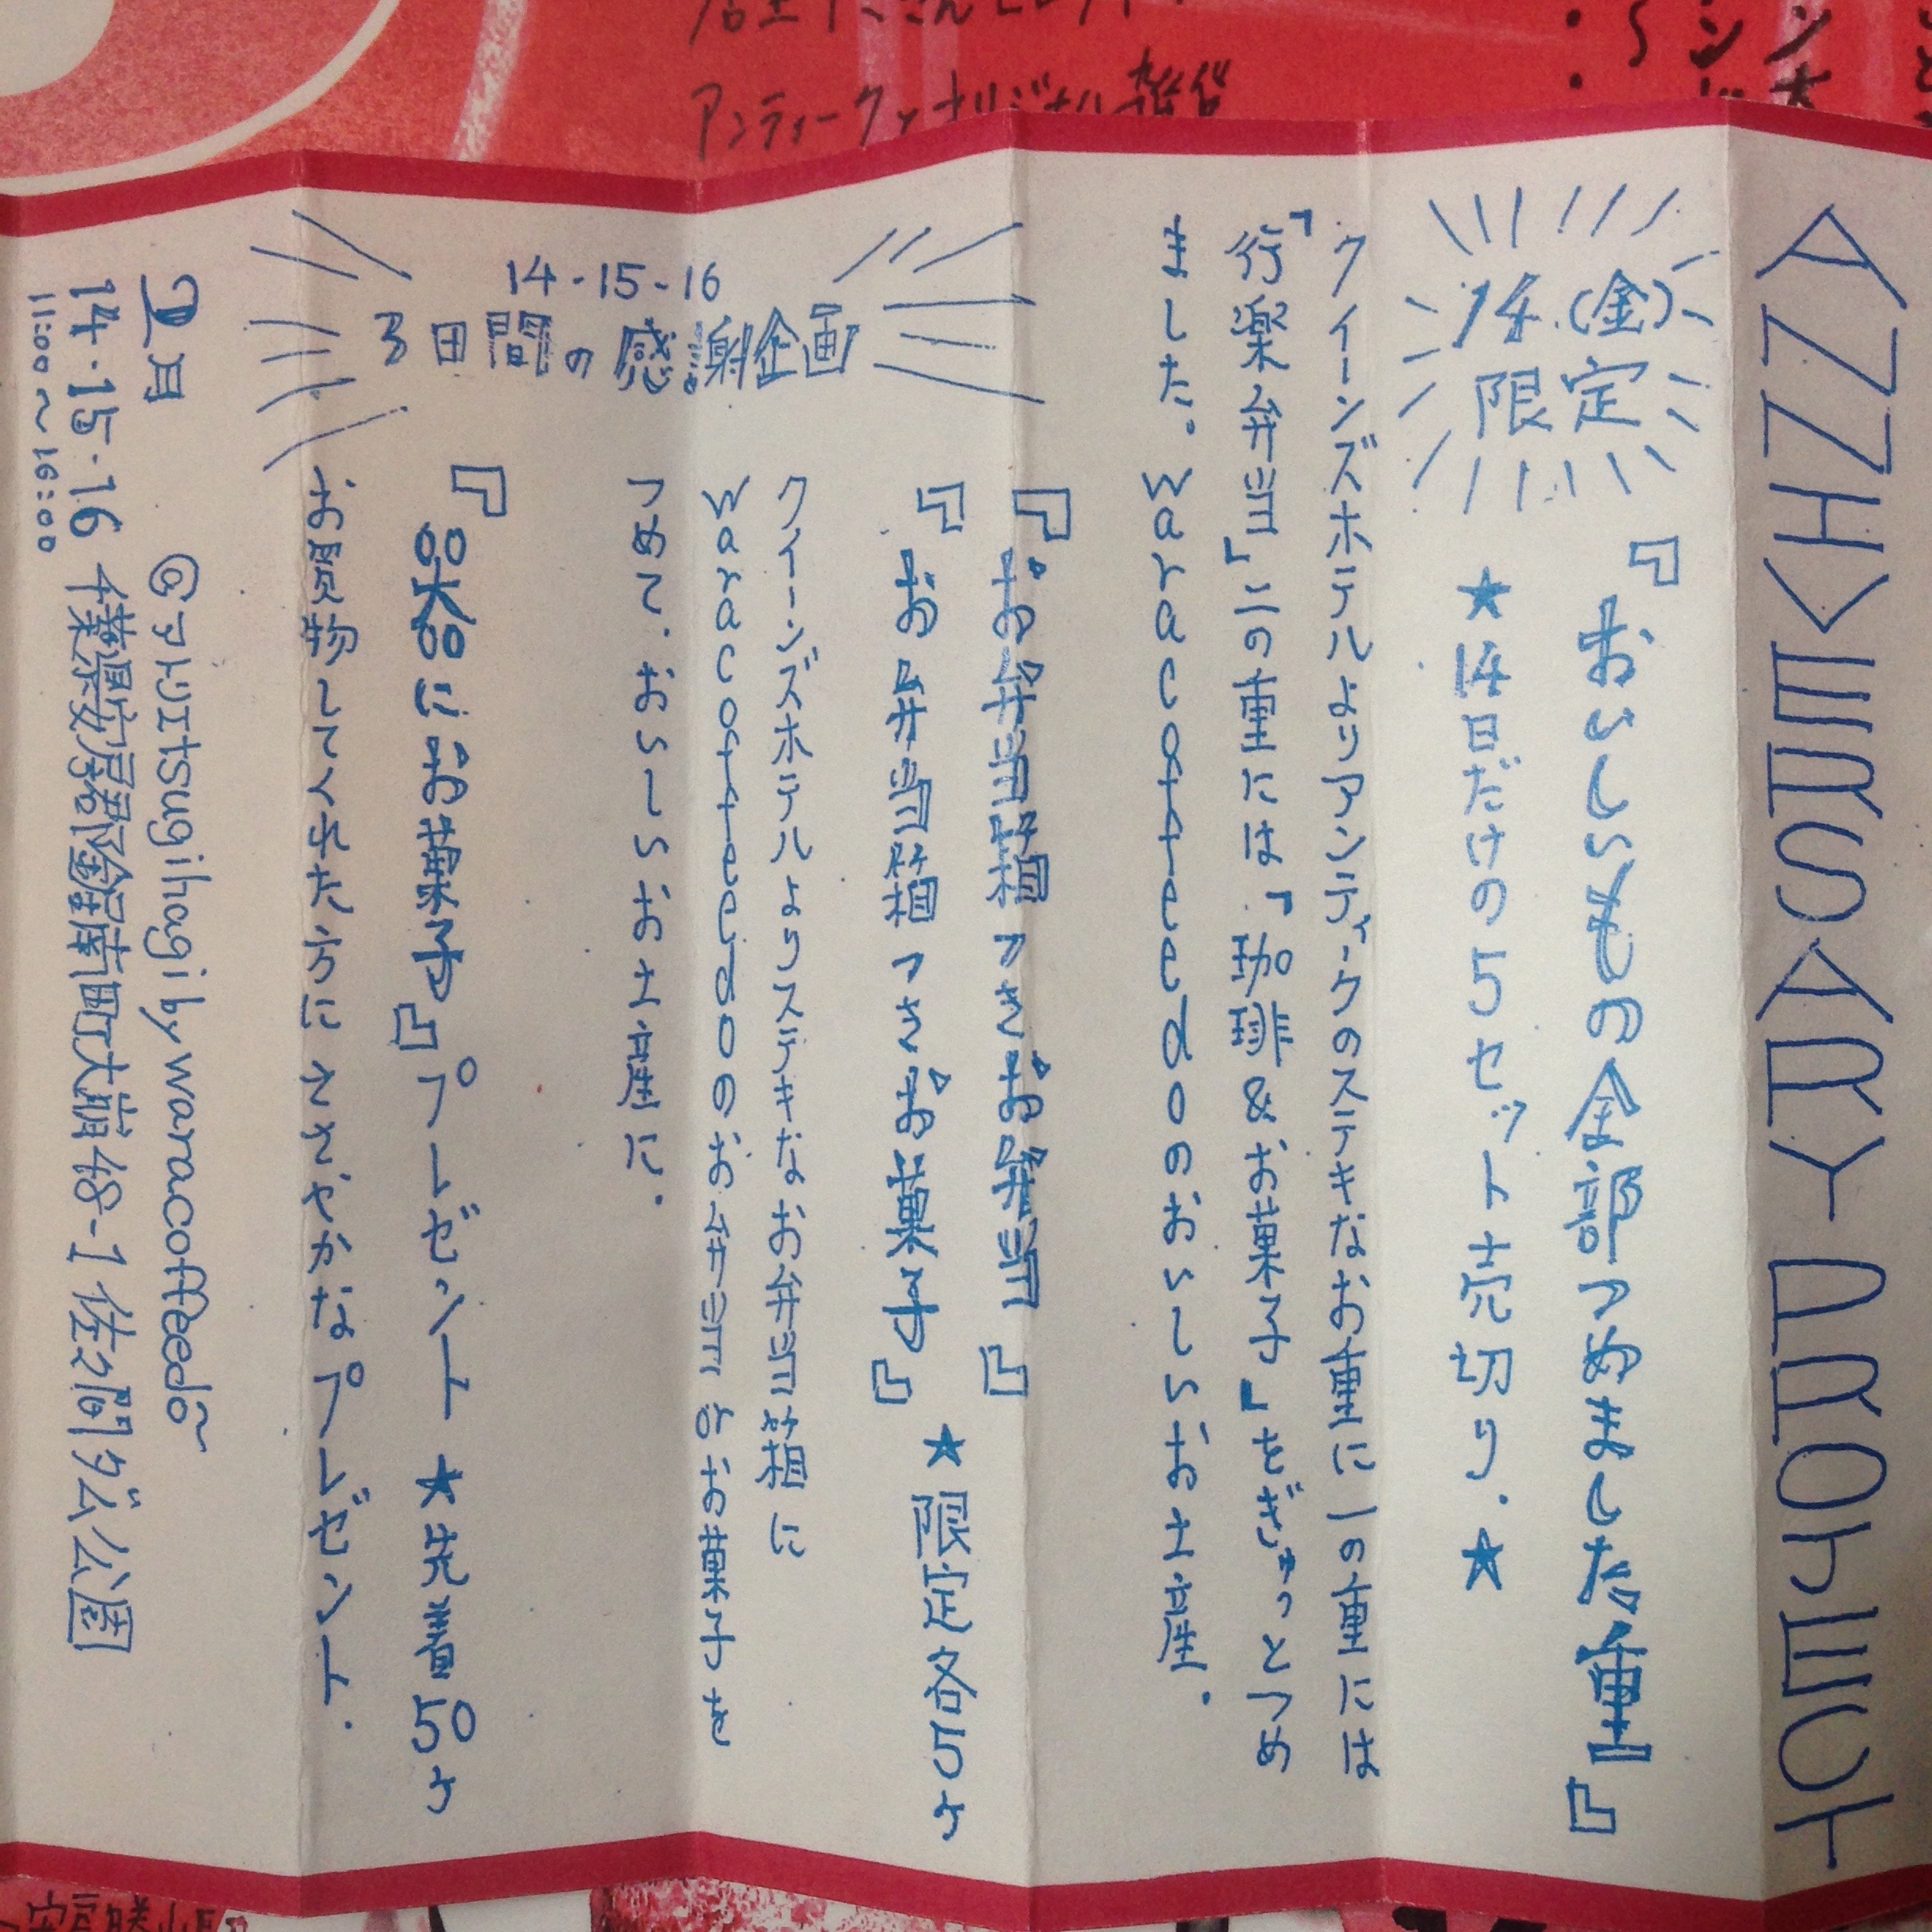 ANNIVERSARY PROJECT
14(金)
限定
『おいしいもの全部つめました重』
★14日だけの5セット売切り.★
クイーンズホテルよりアンティークのステキなお重に一の重には
「行楽弁当」二の重には『珈琲&お菓子』をぎゅっとつめ
ました。waracoffeedoのおいしいお土産.
14-15-16
3日間の感謝企画
『お弁当箱つきお弁当』
『お弁当箱つきお菓子』★限定各5ケ
クイーンズホテルよりステキなお弁当箱に
waracoffeedoのお弁当とお菓子を
つめて.おいしいお土産に.
『器にお菓子』プレゼント★先着50ケ
お買物して下さった方にささやかなプレゼント.
@アトリエtsugihagi by waracoffeedo~
14・15・16 千葉県安房郡鋸南町大崩48-1 佐久間ダム公園
11:00〜16:00
アンティークとオリジナル雑貨